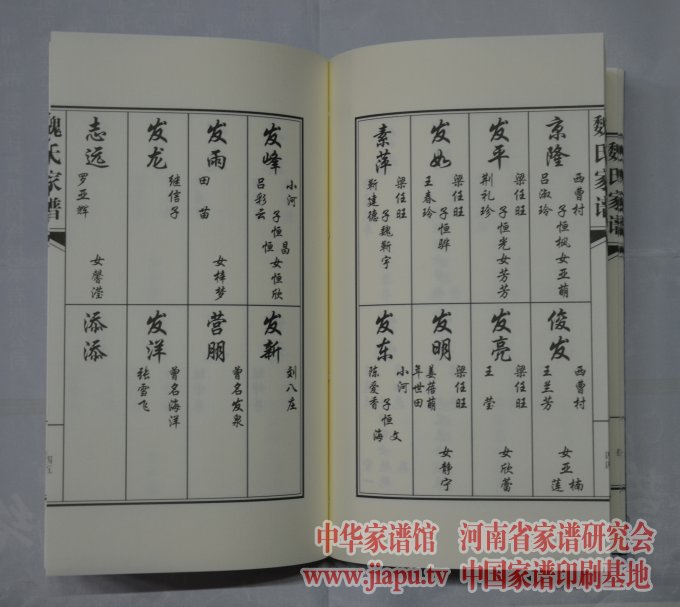 魏氏家谱
魏氏家谱
京隆
西曹村
吕淑玲
子恒枫
女亚萌
发平
梁任旺
荆礼珍
子恒光
女芳芳
发如
梁任旺
王春玲
子恒骅
素萍
梁任旺
靳建德
子魏靳宇
俊发
西曹村
王兰芳
女亚楠
莲
发亮
梁任旺
王莹
女欣蕾
发明
梁任旺
姜蓓萌
年世田
女静宁
发东
小河
陈爱香
子恒文
海
四四
发峰
小河
吕彩云
子恒昌
恒
女恒欣
发雨
田苗
女梓梦
发龙
继信子
志远
罗亚辉
女馨滢
发新
刘八庄
营朋
曾名发泉
发洋
曾名海洋
张雪飞
添添
魏氏家谱
四五
中华家谱馆 河南省家谱研究会
www.jiapu.tv 中国家谱印刷基地